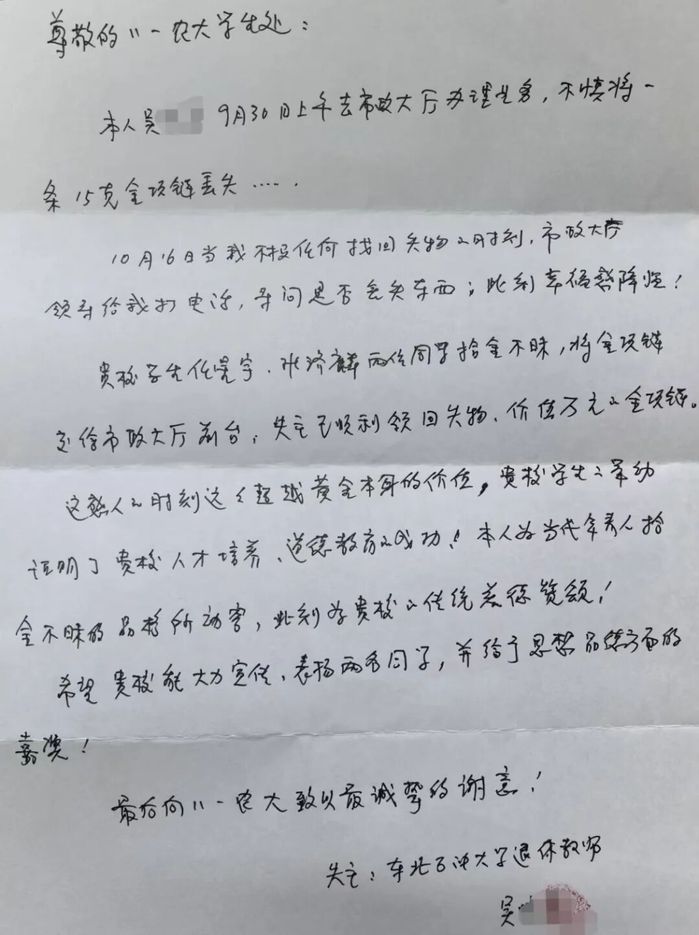 尊敬的八一农大学生处：
本人吴 9月30日上午去市政大厅办理业务，不慎将一
条15克金项链丢失……
10月16日当我不报任何找回失物的时刻，市政大厅
领导给我打电话，寻问是否丢失东西；此刻幸福感降临！
贵校学生任 宇、张济麟两位同学拾金不昧，将金项链
送给市政大厅前台，失主已顺利领回失物、价值万元的金项链。
这感人的时刻远远超越黄金本身的价值，贵校学生之举动
证明了贵校人才培养、道德教育的成功！本人为当代年青人拾
金不昧的品格所动容，此刻为贵校的传统美德赞颂！
希望贵校能大力宣传、表扬两名同学，并给予思想品德方面的
嘉奖！
最后向八一农大致以最诚挚的谢意！
失主：东北石油大学退休教师
吴